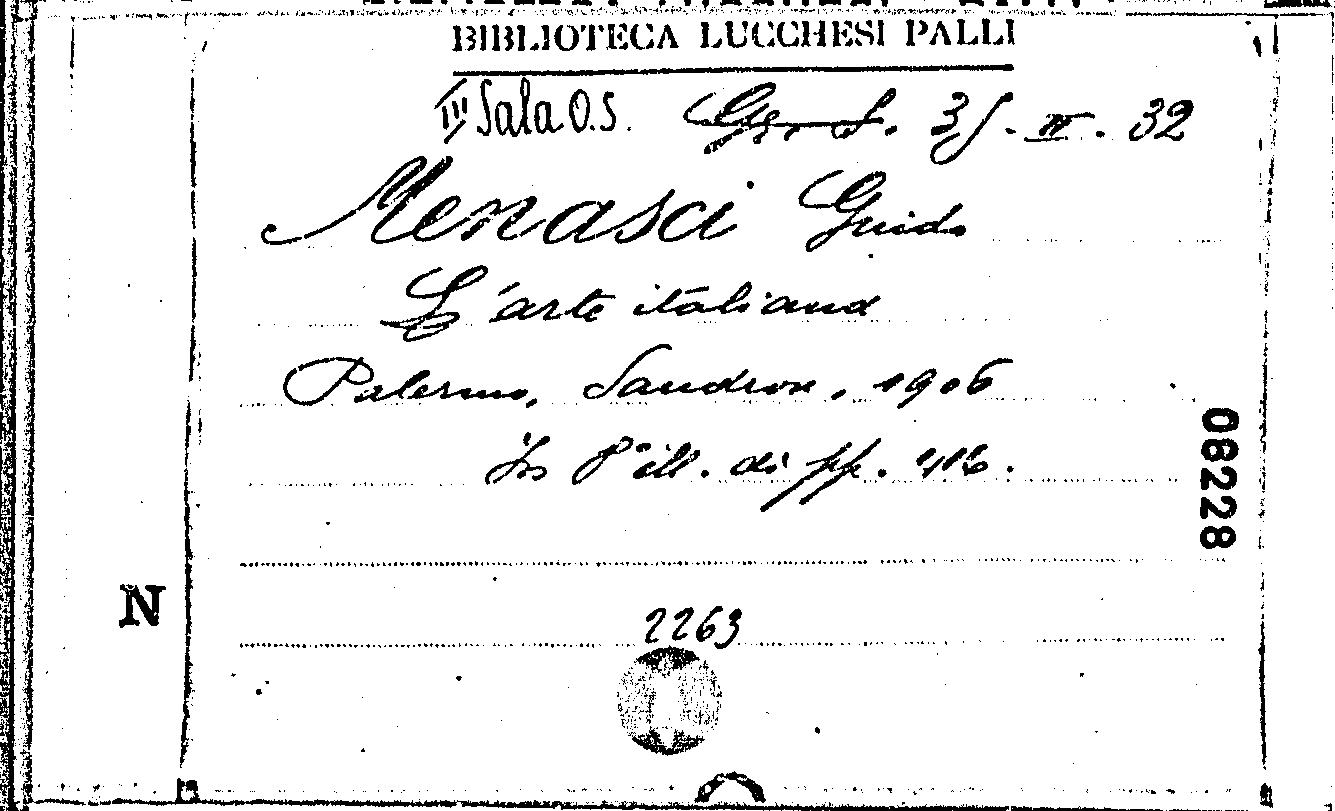 BIBLIOTECA LUCCHESI PALLI
III Sala O.S. Gr. S. 35. III. 32
Menasci Guido
L'arte italiana
Palermo, Sandron, 1906
In 8° ill. di pp. 416.
08228
N
2263